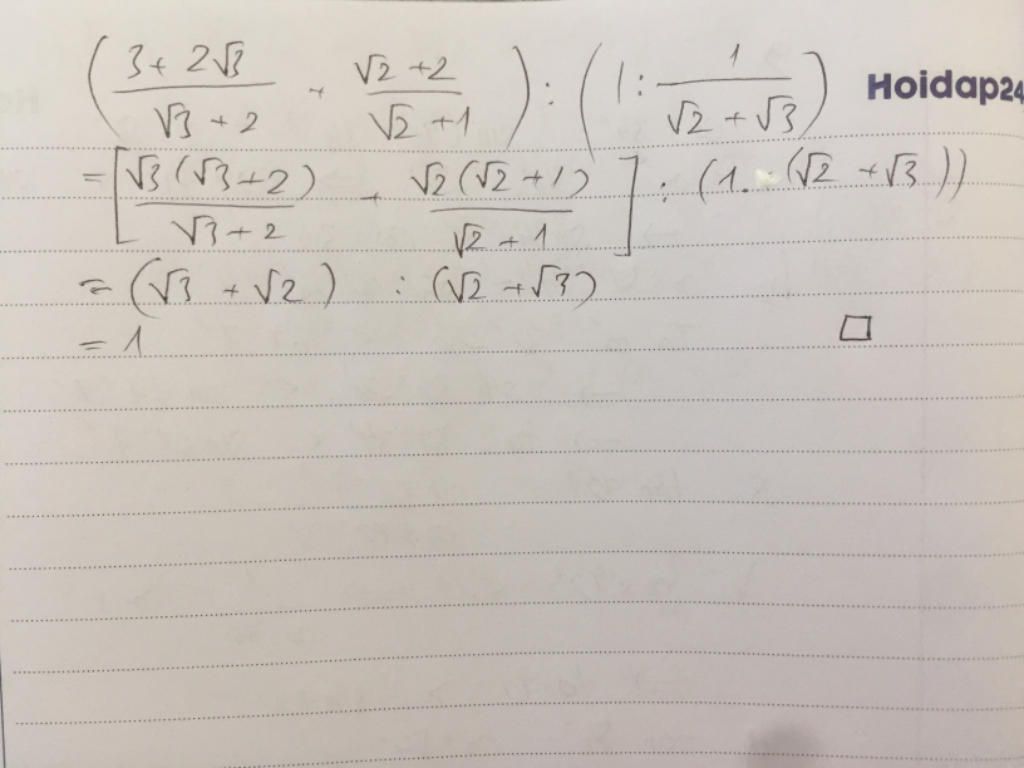 ( (3 + 2√3)/(√3 + 2) + (√2 + 2)/(√2 + 1) ) : ( 1 : 1/(√2 + √3) )
Hoidap24
= [ √3(√3+2)/(√3 + 2) + √2(√2 + 1)/(√2 + 1) ] : (1. (√2 + √3))
= (√3 + √2) : (√2 + √3)
= 1